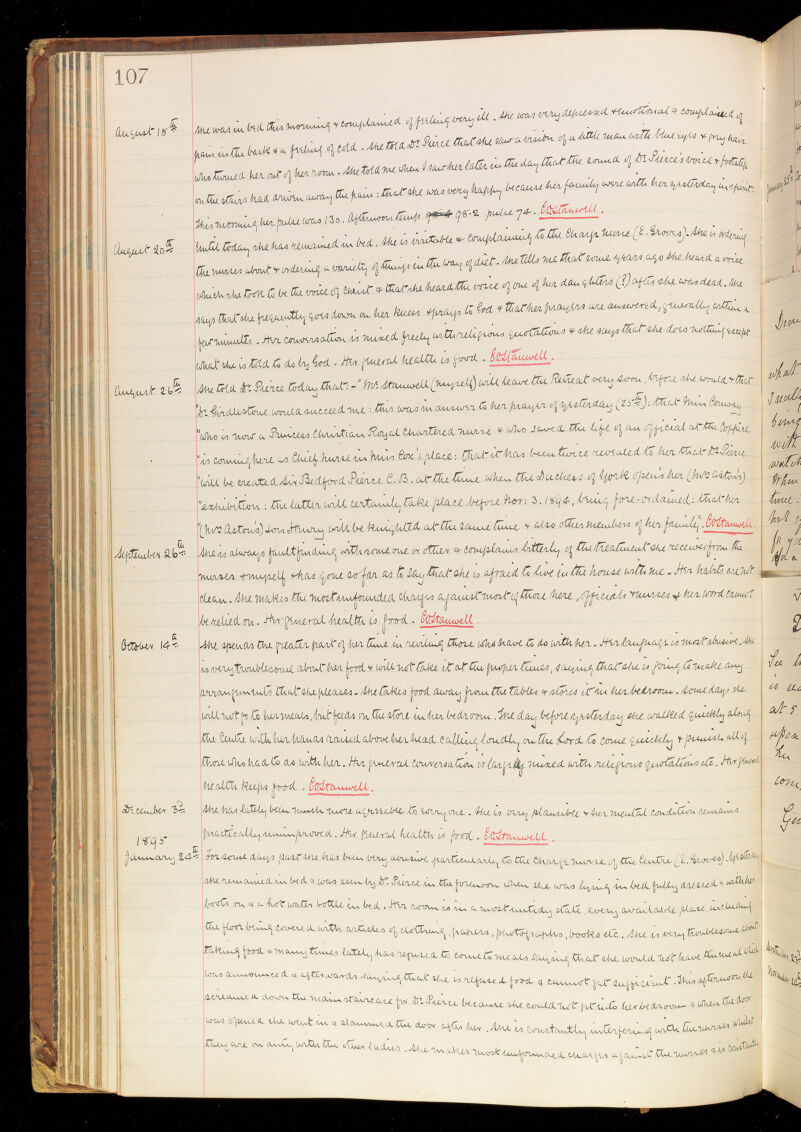 107
August 18th She was in bed this morning & complained of feeling very ill. She was very depressed & emotional & complained of
pain in the back & a feeling of cold. She told Dr Pierce that she saw a vision of a little man with blue eyes & grey hair
who turned her out of her room. She told me when I saw her later in the day that the sound of Dr Pierce's voice & footstep
on the stairs had driven away the pain: that she was very happy because her family were with her yesterday in spirit.
This morning her pulse was 130. Afternoon temp. 98.2 pulse 74. COStanwell.
August 20th Until today she has remained in bed. She is irritable & complaining to the Charge Nurse (E. Groves). She is ordering
the nurses about & ordering a variety of things in the way of diet. She tells me that some years ago she heard a voice
which she took to be the voice of Christ & that she heard the voice of one of her daughters (?) after she was dead. She
says that she frequently goes down on her knees & prays to God & that her prayers are answered, generally within a
few minutes. Her conversation is mixed freely with religious quotations & she says that she does nothing except
what she is told to do by God. Her general health is good. COStanwell.
August 26th She told Dr Pierce today that:- "Mr Stanwell (myself) will leave the Retreat very soon, before she would & that
"Dr Girdlestone would succeed me: this was in answer to her prayer of yesterday (25th): that Miss Conway
"who is now a Princess Christian Royal Chartered nurse & who saved the life of an official at the
"is coming here as Chief nurse in Miss Cox's place: that it has been twice revealed to her that Dr Pierce
"will be created Sir Bedford Pierce C.B. at the time when the Duchess of York opens her (Mrs Aston's)
"exhibition: the latter will certainly take place before Nov: 3. 1894, being fore-ordained: that her
"(Mrs Aston's) son Henry will be knighted at the same time & also other members of her family". COStanwell.
September 26th She is always fault finding with some one or other & complains bitterly of the treatment she receives from the
nurses & myself & has gone so far as to say that she is afraid to live in the house with me. Her habits are not
clean. She makes the most unfounded charges against most of those here, officials & nurses & her word cannot
be relied on. Her general health is good. COStanwell
October 14th She spends the greater part of her time in reviling those who have to do with her. Her language is most abusive. She
is very troublesome about her food & will not take it at the proper times, saying that she is going to make any
arrangements that she pleases. She takes food away from the tables & stores it in her bedroom. Some days she
will not go to her meals, but feeds on the store in her bedroom. The day before yesterday she walked quickly along
the Centre with her hands raised above her head calling loudly on the Lord to come quickly & punish all of
those who had to do with her. Her general conversation is largely mixed with religious quotations etc. Her general
health keeps good. COStanwell.
December 3rd She has lately been much more agreeable to everyone. She is very plausible & her mental condition remains
practically unimproved. Her general health is good. COStanwell.
1895
January 24th For some days past she has been very abusive particularly to the Charge nurse of the Centre (E. Groves). Yesterday
she remained in bed & was seen by Dr Pierce in the forenoon when she was lying in bed fully dressed & with her
boots on & a hot water bottle in bed. Her room is in a most untidy state, every available place, including
the floor being covered with articles of clothing, papers, photographs, books etc. She is very troublesome about
taking food & many times lately has refused to come to meals saying that she would not have the meal which
was announced & afterwards saying that she is refused food & cannot get sufficient. This afternoon she
screamed down the main staircase for Dr Pierce because she could not get into her bedroom & when the door
was opened she went in & slammed the door after her. She is constantly interfering with the nurses whilst
they are on duty with the other ladies. She makes most unfounded charges against the nurses & is constantly